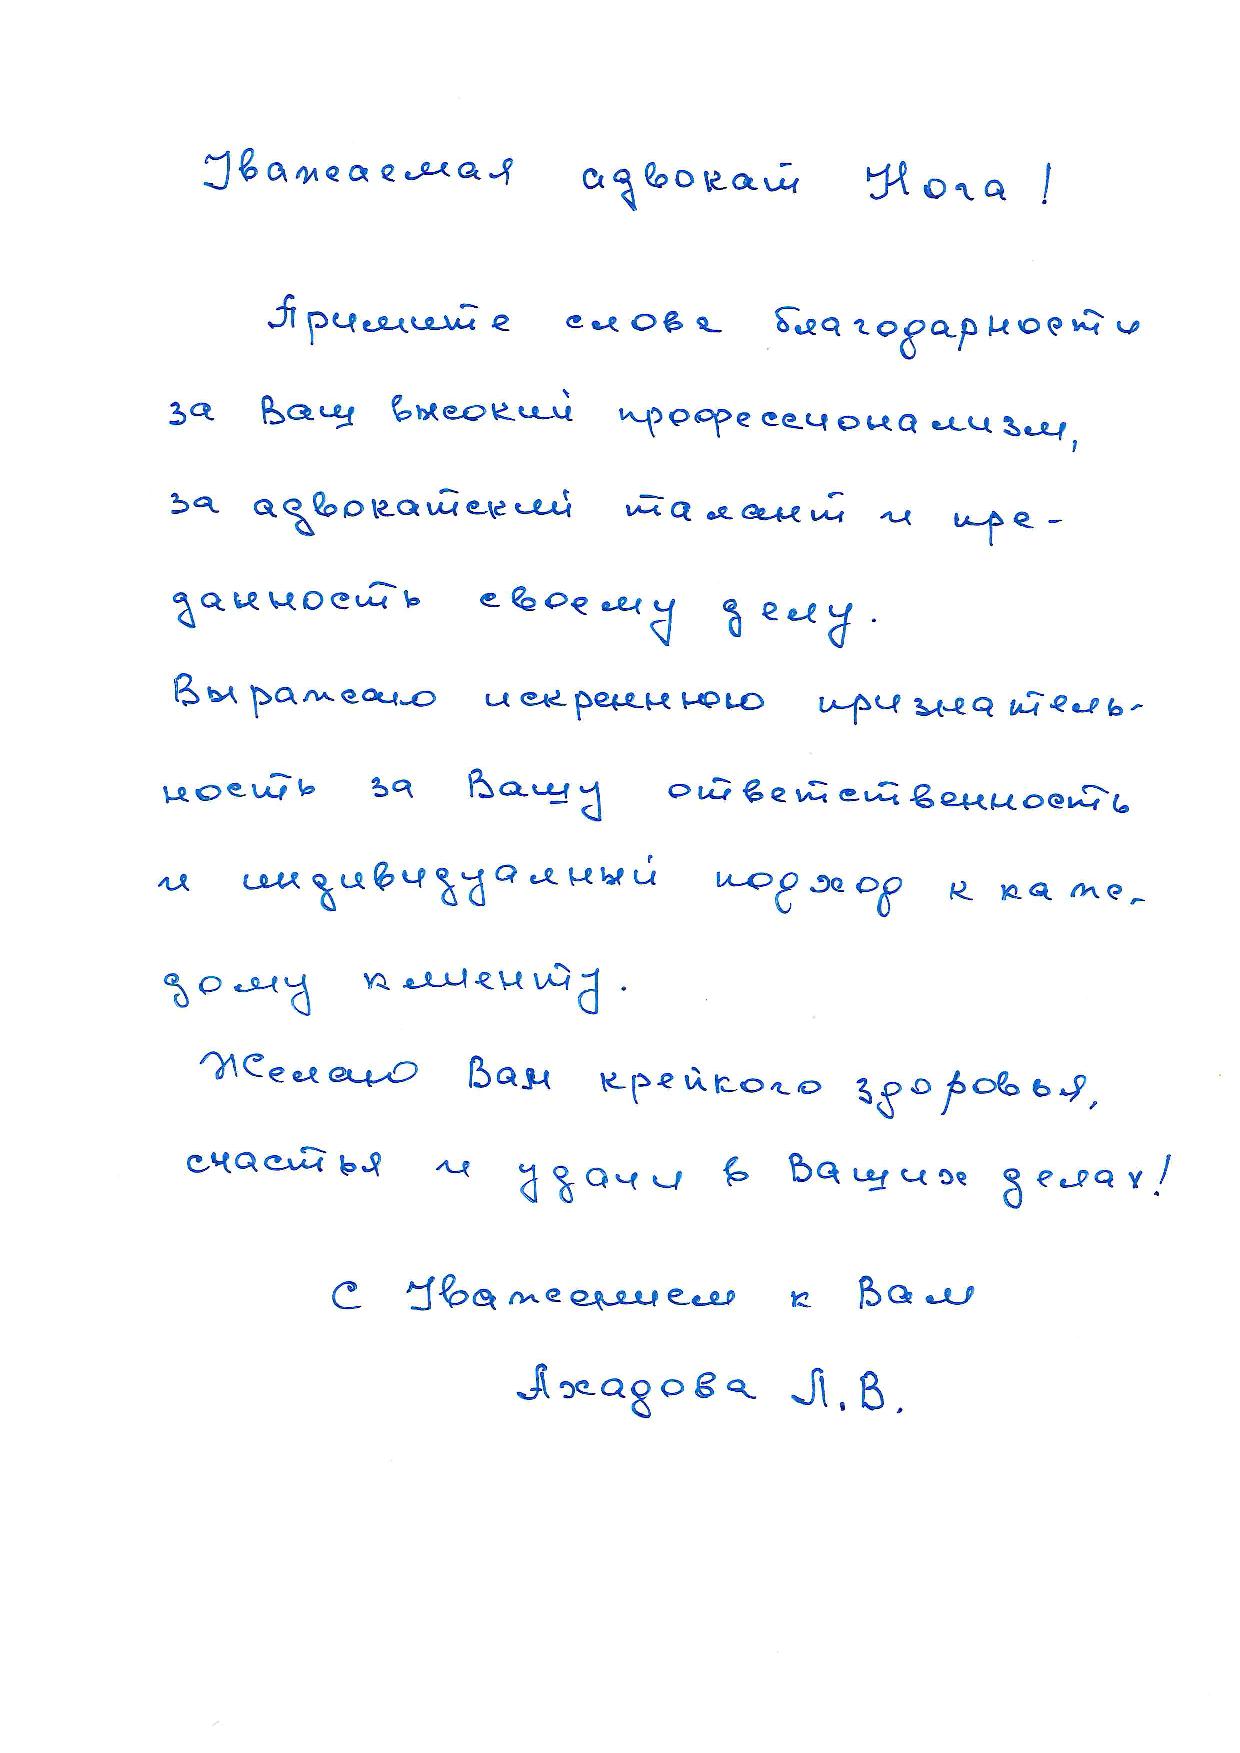 Уважаемая адвокат Нога!
Примите слова благодарности
за Ваш высокий профессионализм,
за адвокатский талант и пре-
данность своему делу.
Выражаю искреннюю признатель-
ность за Вашу ответственность
и индивидуалный подход к каж-
дому клиенту.
Желаю Вам крепкого здоровья,
счастья и удачи в Ваших делах!
С Уважением к Вам
Ахадова Л.В.